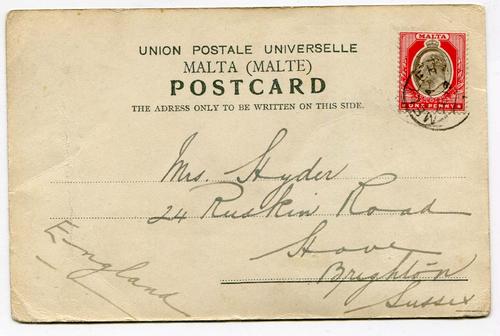 UNION POSTALE UNIVERSELLE
MALTA (MALTE)
POSTCARD
THE ADRESS ONLY TO BE WRITTEN ON THIS SIDE.
MALTA
ONE PENNY
Mrs. Hyder
24 Ruskin Road
Hove
Brighton
Sussex
England